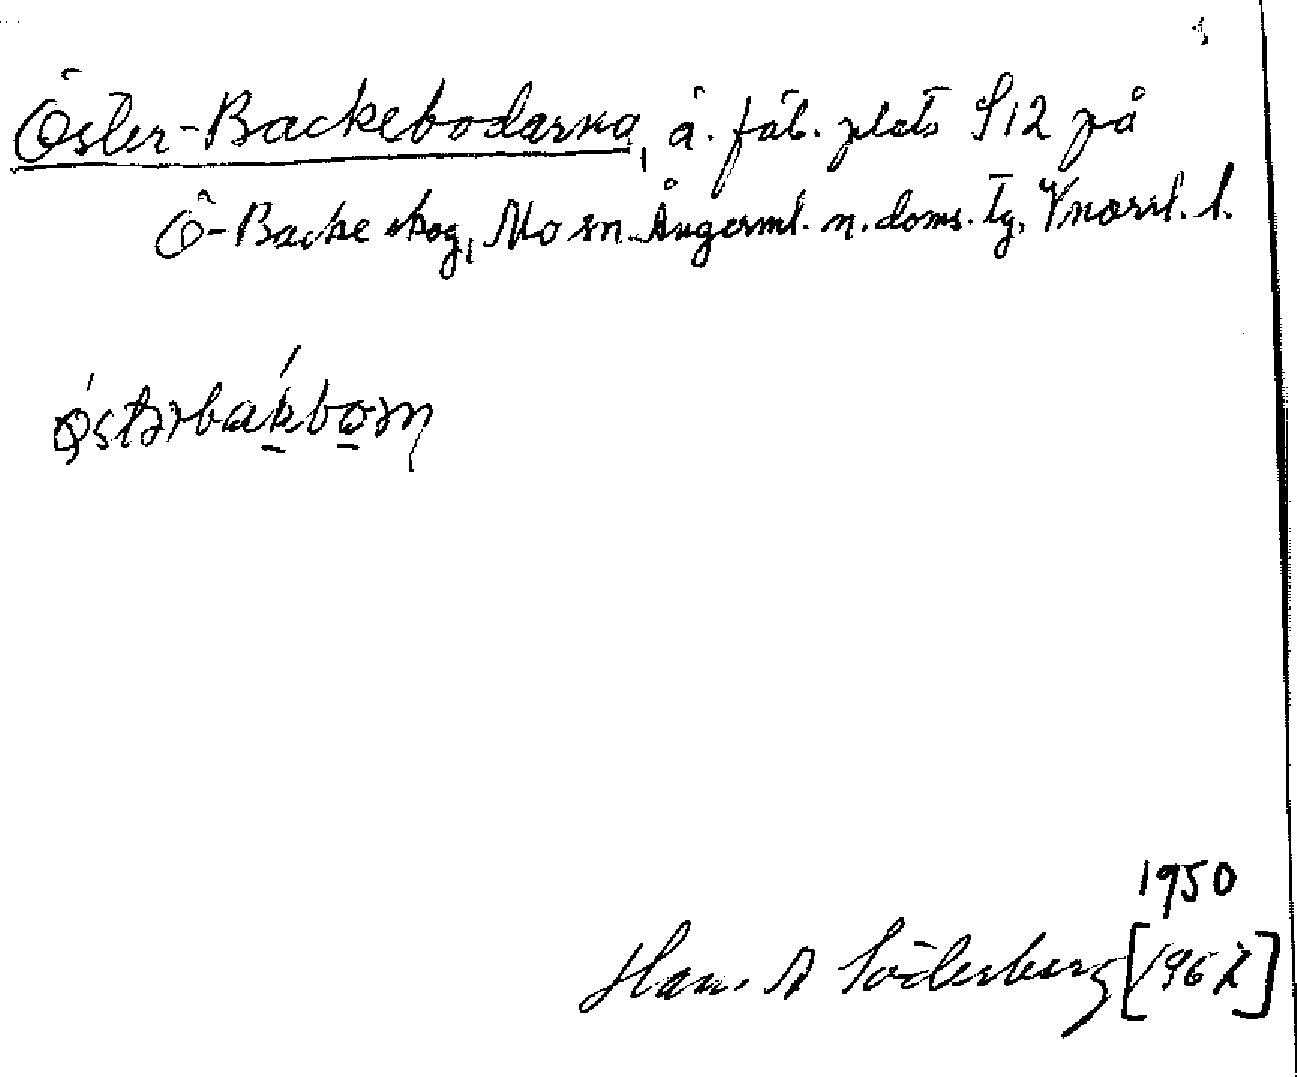 Öster-Backebodarna, ä. fäb. plats S12 på
Ö-Backe skog, Mo sn. Ångerml. n. doms. Tg. Vnorrl. l.
östərbákboɳ
1950
Hans A Söderberg [1962]